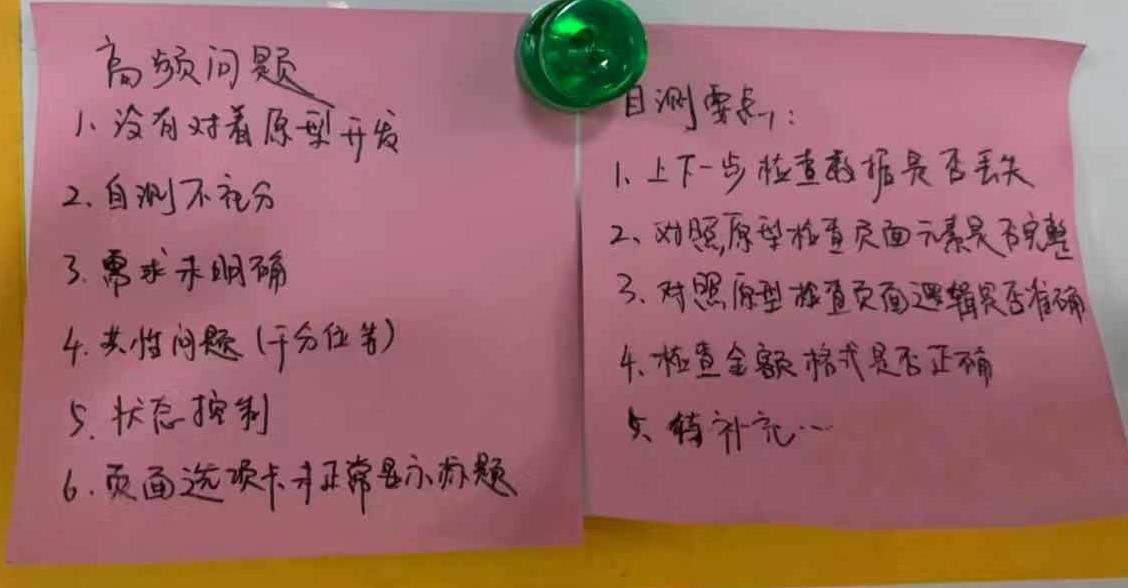 高频问题
1、没有对着原型开发
2、自测不充分
3、需求未明确
4、共性问题(千分位等)
5、状态控制
6、页面选项卡未正常显示标题
自测要点:
1、上下一步检查数据是否丢失
2、对照原型检查页面元素是否完整
3、对照原型检查页面逻辑是否准确
4、检查金额格式是否正确
5、待补充…